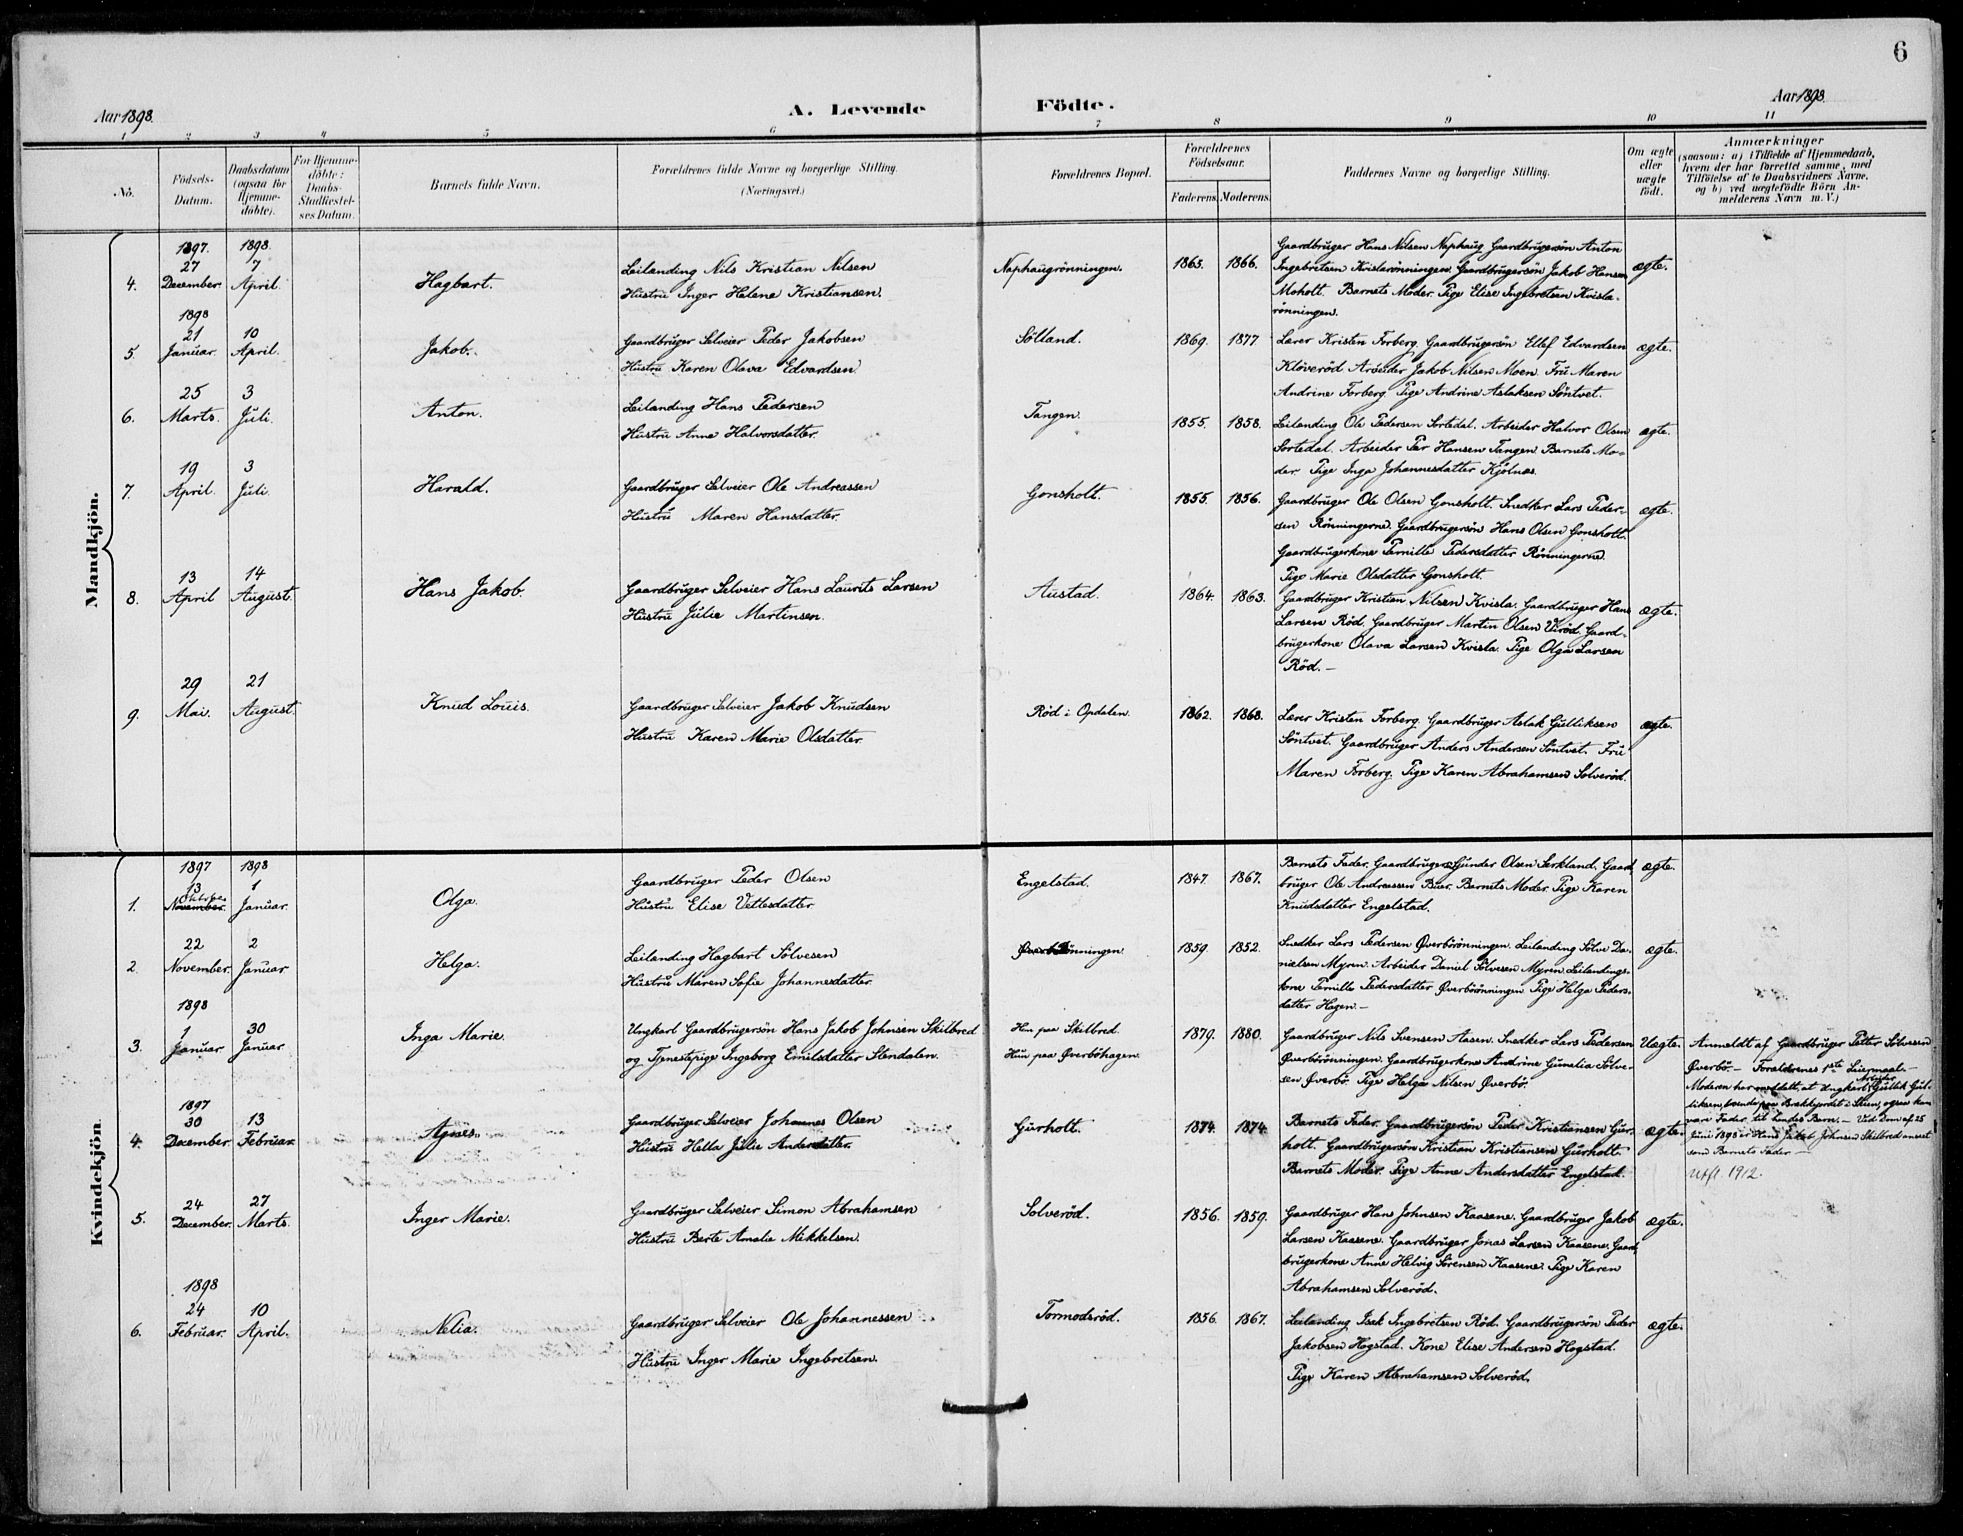 6
Aar 1898. A. Levende Födte. Aar 1898.
1 2 3 4 5 6 7 8 9 10 11
No.
Födsels-
Datum.
Daabsdatum
(ogsaa for
Hjemme-
döbte).
For Hjemme-
döbte:
Daabs-
Stadfæstel-
ses Datum.
Barnets fulde Navn.
Forældrenes fulde Navne og borgerlige Stilling.
(Næringsvei.)
Forældrenes Bopæl.
Forældrenes
Födselsaar.
Faderens. Moderens.
Faddernes Navne og borgerlige Stilling.
Om ægte
eller
uægte
födt.
Anmærkninger
(saasom: a) i Tilfælde af Hjemmedaab,
hvem der har forrettet samme, med
Tilföielse af to Daabsvidners Navne,
og b) ved uægtefödte Börn An-
melderens Navn m. V.)
Mandkjön.
4.
1897.
27
December.
1898.
7
April.
Hagbart.
Leilending Nils Kristian Nilsen
Hustru Inger Helene Kristiansen.
Naphaugrönningen.
1865. 1866.
Gaardbruger Hans Nilsen Naphaug Gaardbrugersön Anton
Ingebretsen Kvislarönningen. Gaardbrugersön Jakob Hansen
Moholt. Barnets Moder. Pige Elise Ingebretsen Kvisla-
rönningen.
ægte.
5.
1898
21
Januar.
10
April.
Jakob.
Gaardbruger Selveier Peder Jakobsen
Hustru Karen Olava Edvardsen
Sölland.
1869. 1877
Lærer Kristen Forberg. Gaardbrugersön Ellef Edvardsen
Klöveröd Arbeider Jakob Nilsen Moen. Fru Maren
Andrine Forberg Pige Andrine Aslaksen Söntvet.
ægte.
6.
25
Marts.
3
Juli.
Anton.
Leilending Hans Pedersen
Hustru Anne Halvorsdatter.
Tangen.
1855. 1858.
Leilending Ole Pedersen Sortedal. Arbeider Halvor Olsen
Sortedal. Arbeider Per Hansen Tangen Barnets Mo-
der. Pige Inga Johannesdatter Kjölnæs.
ægte.
7.
19
April.
3
Juli.
Harald.
Gaardbruger Selveier Ole Andreassen
Hustru Maren Hansdatter.
Gonsholt.
1855. 1856.
Gaardbruger Ole Olsen Gonsholt. Snedker Lars Peder-
sen Rönningerne. Gaardbrugersön Hans Olsen Gonsholt.
Gaardbrugerkone Pernille Pedersdatter Rönningerne.
Pige Marie Olsdatter Gonsholt.
ægte.
8.
13
April
14
August.
Hans Jakob.
Gaardbruger Selveier Hans Laurits Larsen
Hustru Julie Martinsen.
Austad.
1864. 1863.
Gaardbruger Kristian Nilsen Kvisla. Gaardbruger Hans
Larsen Röd. Gaardbruger Martin Olsen Viröd. Gaard-
brugerkone Olava Larsen Kvisla. Pige Olga Larsen
Röd. —
ægte.
9.
29
Mai.
21
August.
Knud Louis.
Gaardbruger Selveier Jakob Knudsen
Hustru Karen Marie Olsdatter.
Röd i Opdalen.
1862. 1868.
Lærer Kristen Forberg. Gaardbruger Aslak Gulliksen
Söntvet. Gaardbruger Anders Andersen Söntvet. Fru
Maren Forberg. Pige Karen Abrahamsen Solveröd.
ægte.
Kvindekjön.
1.
1897
13
Oktober
November.
1898
1
Januar.
Olga.
Gaardbruger Peder Olsen
Hustru Elise Vetlesdatter
Engelstad.
1847. 1867.
Barnets Fader. Gaardbruger Gunder Olsen Serkland. Gaard-
bruger Ole Andreassen Buer. Barnets Moder. Pige Karen
Knudsdatter Engelstad.
ægte.
2.
22
November.
2
Januar.
Helga.
Leilending Hagbart Sölvesen
Hustru Maren Sofie Johannesdatter.
Øverbörönningen.
1859. 1852.
Snedker Lars Pedersen Øverbörönningen. Leilending Sölve Da-
nielsen Myren. Arbeider Daniel Sölvesen Myren. Leilendings-
kone Pernille Pedersdatter Øverbörönningen. Pige Helga Peders-
datter Hagen. —
ægte.
3.
1898
1
Januar.
30
Januar.
Inga Marie.
Ungkarl Gaardbrugersön Hans Jakob Johnsen Skilbred
og Tjenestepige Ingeborg Emilsdatter Stendalen.
Han paa Skilbred
Hun paa Øverböhagen.
1879. 1880.
Gaardbruger Nils Svensen Aasen. Snedker Lars Pedersen
Øverbörönningen. Gaardbrugerkone Andrine Gunelia Sölve-
sen Øverbö. Pige Helga Nilsen Øverbö.
Uægte.
Anmeldt af Gaardbruger Petter Sölvesen
Øverbö. — Forældrenes 1ste Leiermaal. —
Moderen har meddelt, at Ungkarl Arbeider Gullik Gul-
liksen, boende paa Brækkejordet i Skien, ogsaa kan
være Fader til hendes Barn. — Ved Dom af 25
Juni 1898 er Hans Jakob Johnsen Skilbred anseet
som Barnets Fader. —
Utfl. 1912.
4.
1897
30
December.
13
Februar.
Agnes.
Gaardbruger Selveier Johannes Olsen
Hustru Hella Julie Andersdatter.
Gurholt.
1874. 1874.
Barnets Fader. Gaardbrugersön Peder Kristiansen Gur-
holt. Gaardbrugersön Kristian Kristiansen Gurholt.
Barnets Moder. Pige Anne Andersdatter Engelstad.
ægte.
5.
24
December.
27
Marts.
Inger Marie.
Gaardbruger Selveier Simon Abrahamsen
Hustru Berte Amalie Mikkelsen.
Solveröd.
1856. 1859.
Gaardbruger Hans Johnsen Kaasene. Gaardbruger Jakob
Larsen Kaasene. Gaardbruger Jonas Larsen Kaasene. Gaard-
brugerkone Anne Helvig Sörensen Kaasene. Pige Karen
Abrahamsen Solveröd.
ægte.
6.
1898
24
Februar.
10
April.
Nelia.
Gaardbruger Selveier Ole Johannessen
Hustru Inger Marie Ingebretsen.
Tormodsröd.
1856. 1867.
Leilending Isak Ingebretsen Röd. Gaardbrugersön Peder
Jakobsen Hogstad. Kone Elise Andersen Hogstad.
Pige Karen Abrahamsen Solveröd.
ægte.